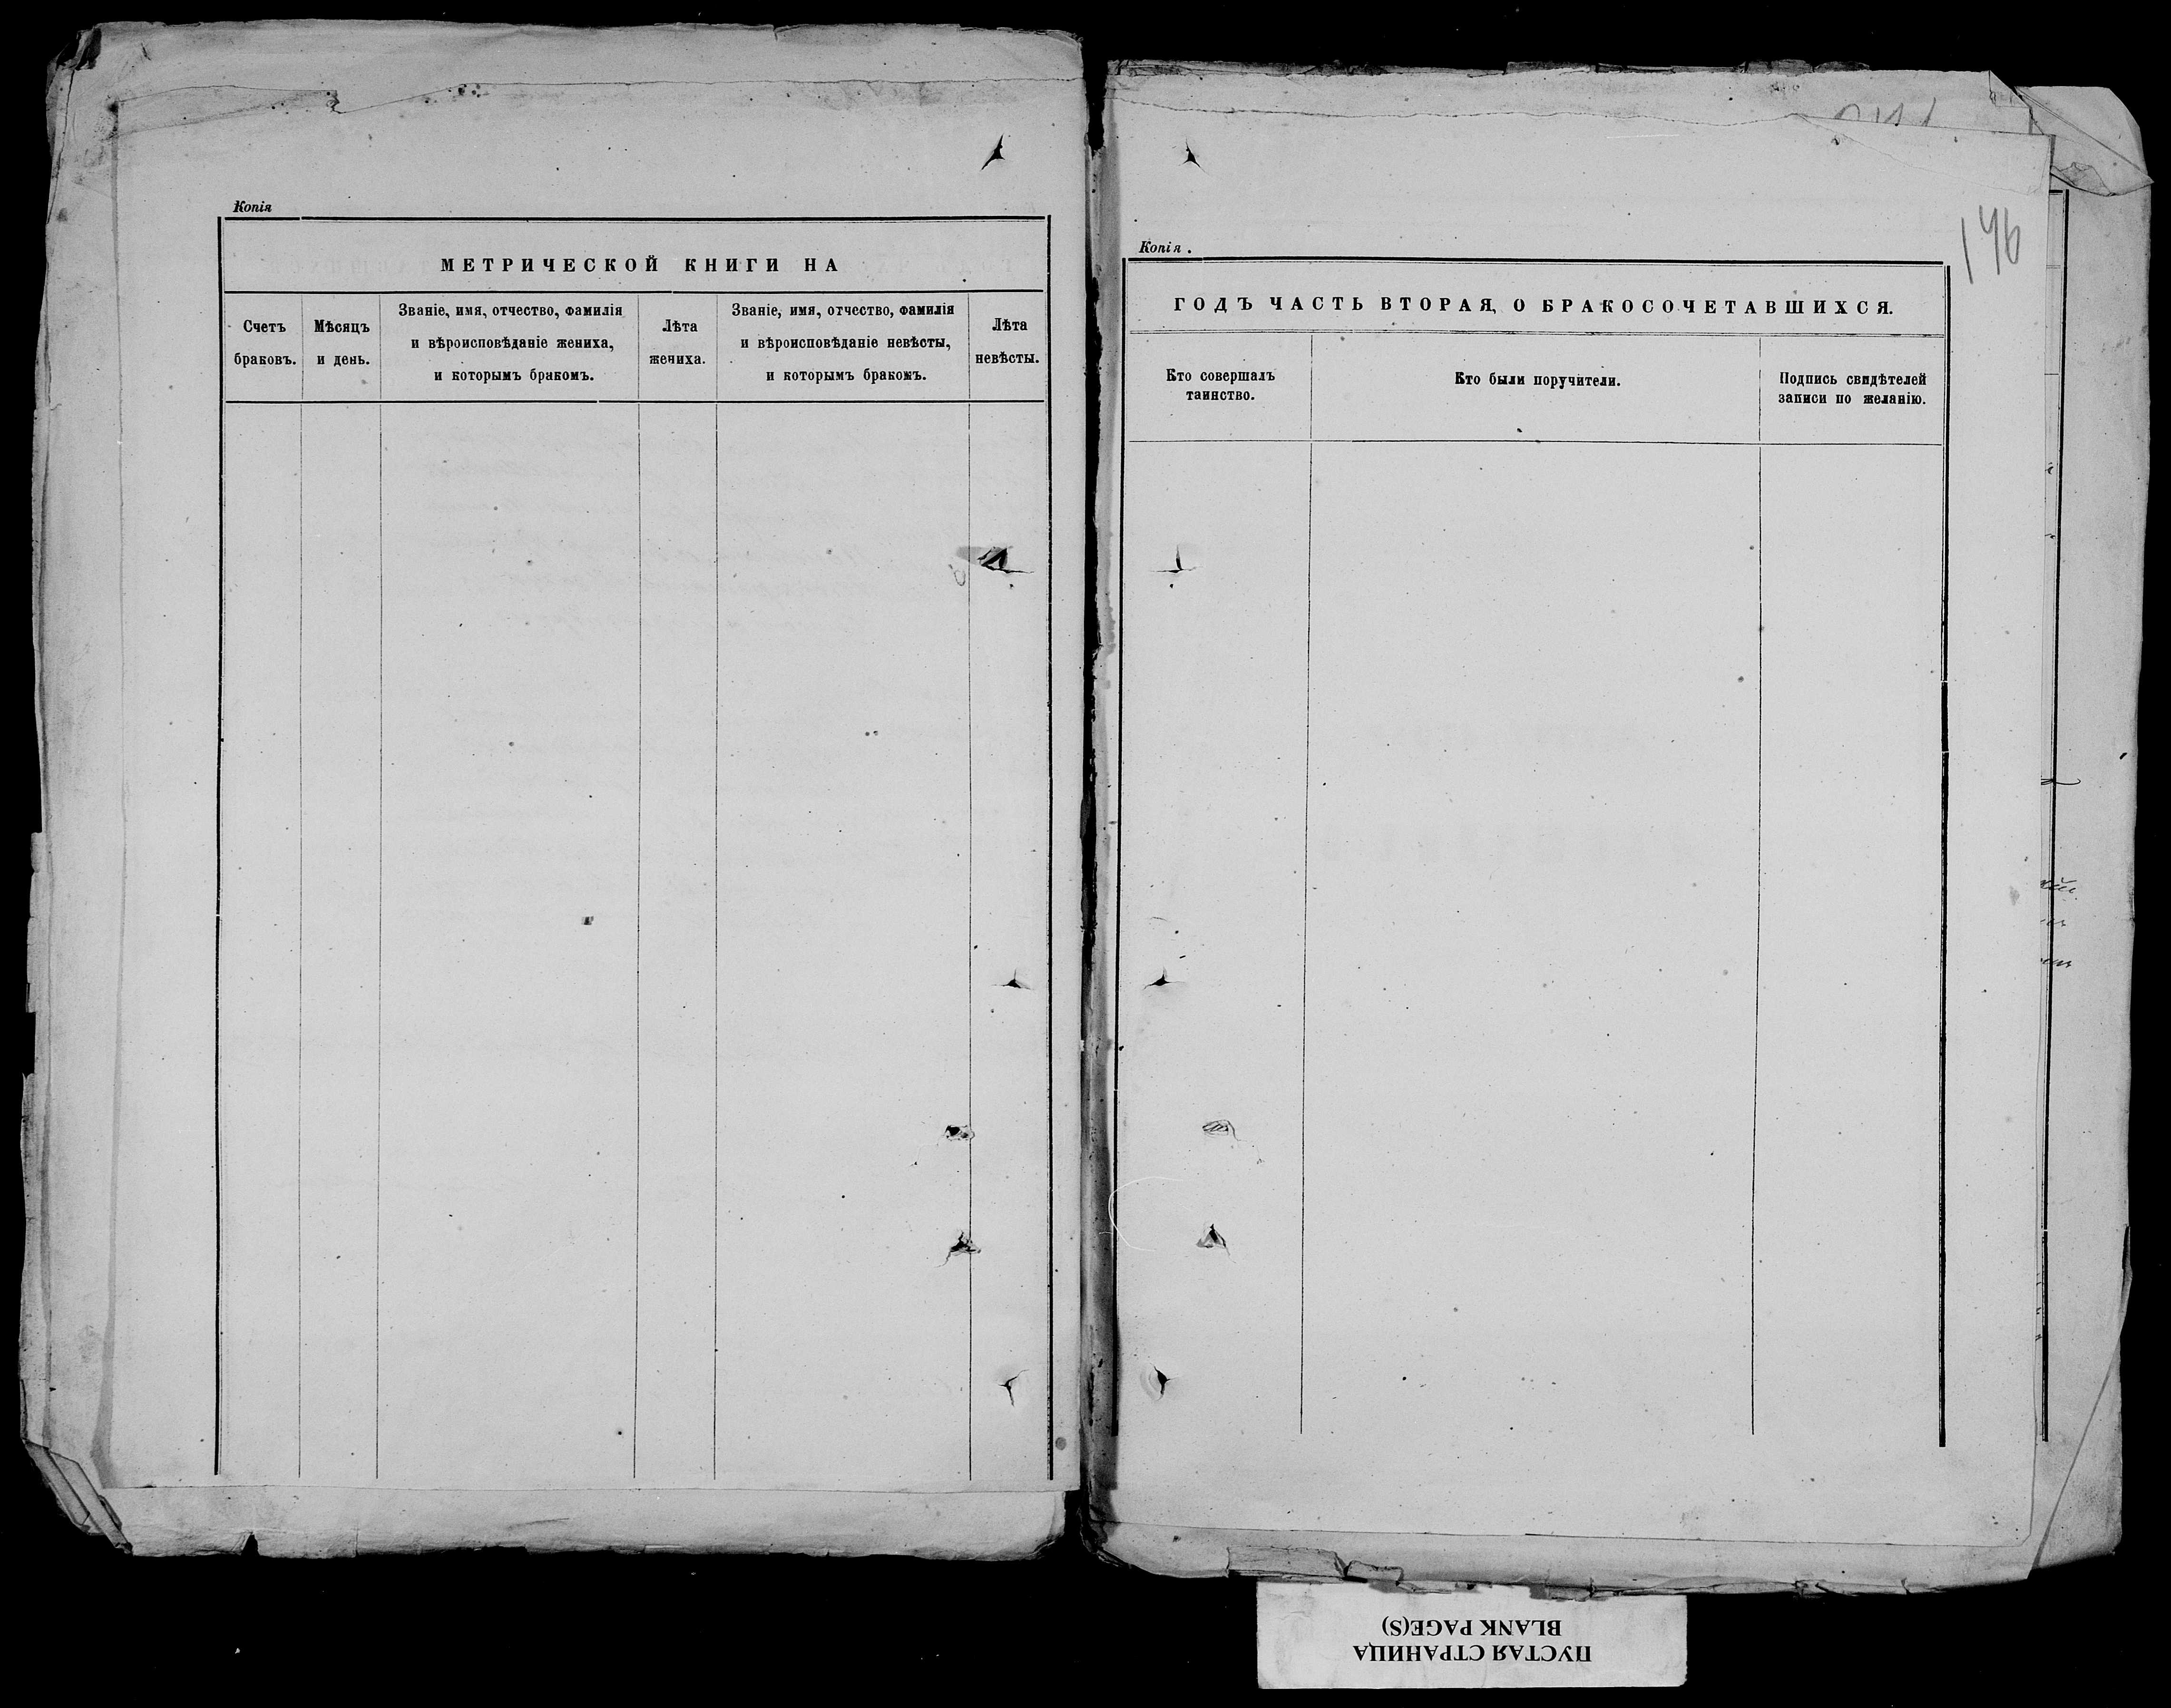 Копія
МЕТРИЧЕСКОЙ КНИГИ НА
Счетъ
браковъ.
Мѣсяцъ
и день.
Званіе, имя, отчество, фамилія
и вѣроисповѣданіе жениха,
и которымъ бракомъ.
Лѣта
жениха.
Званіе, имя, отчество, фамилія
и вѣроисповѣданіе невѣсты,
и которымъ бракомъ.
Лѣта
невѣсты.
146
Копія.
ГОДЪ ЧАСТЬ ВТОРАЯ, О БРАКОСОЧЕТАВШИХСЯ.
Кто совершалъ
таинство.
Кто были поручители.
Подпись свидѣтелей
записи по желанію.
ПУСТАЯ СТРАНИЦА
BLANK PAGE(S)